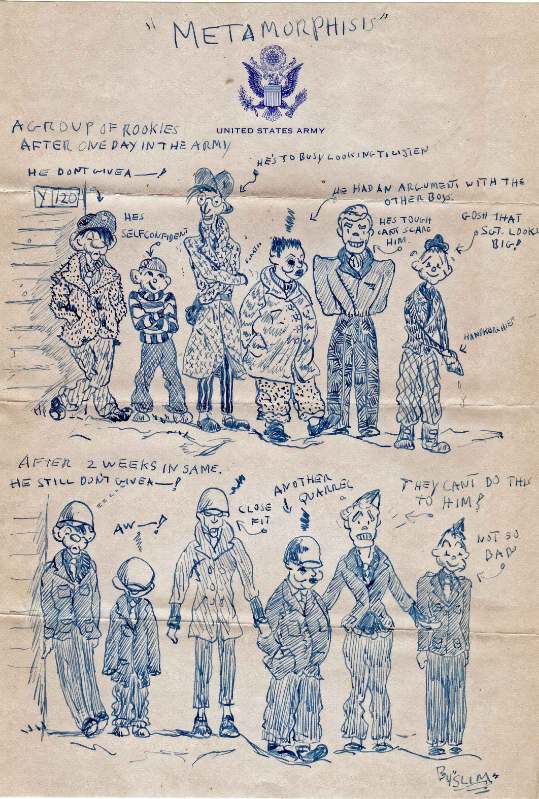 "METAMORPHISIS"
UNITED STATES ARMY
A GROUP OF ROOKIES
AFTER ONE DAY IN THE ARMY
HE DONT GIVE A—!
HE'S TO BUSY LOOKING TO LISTEN
HE HAD AN ARGUMENT WITH THE
OTHER BOYS.
Y/20
HES
SELFCONFIDENT
HES TOUGH
CANT SCARE
HIM
GOSH THAT
SGT. LOOKS
BIG!
HANKERCHIEF
AFTER 2 WEEKS IN SAME.
HE STILL DONT GIVE A—!
AW—!
CLOSE
FIT
ANOTHER
QUARREL
THEY CANT DO THIS
TO HIM!
NOT SO
BAD
BY "SLIM"